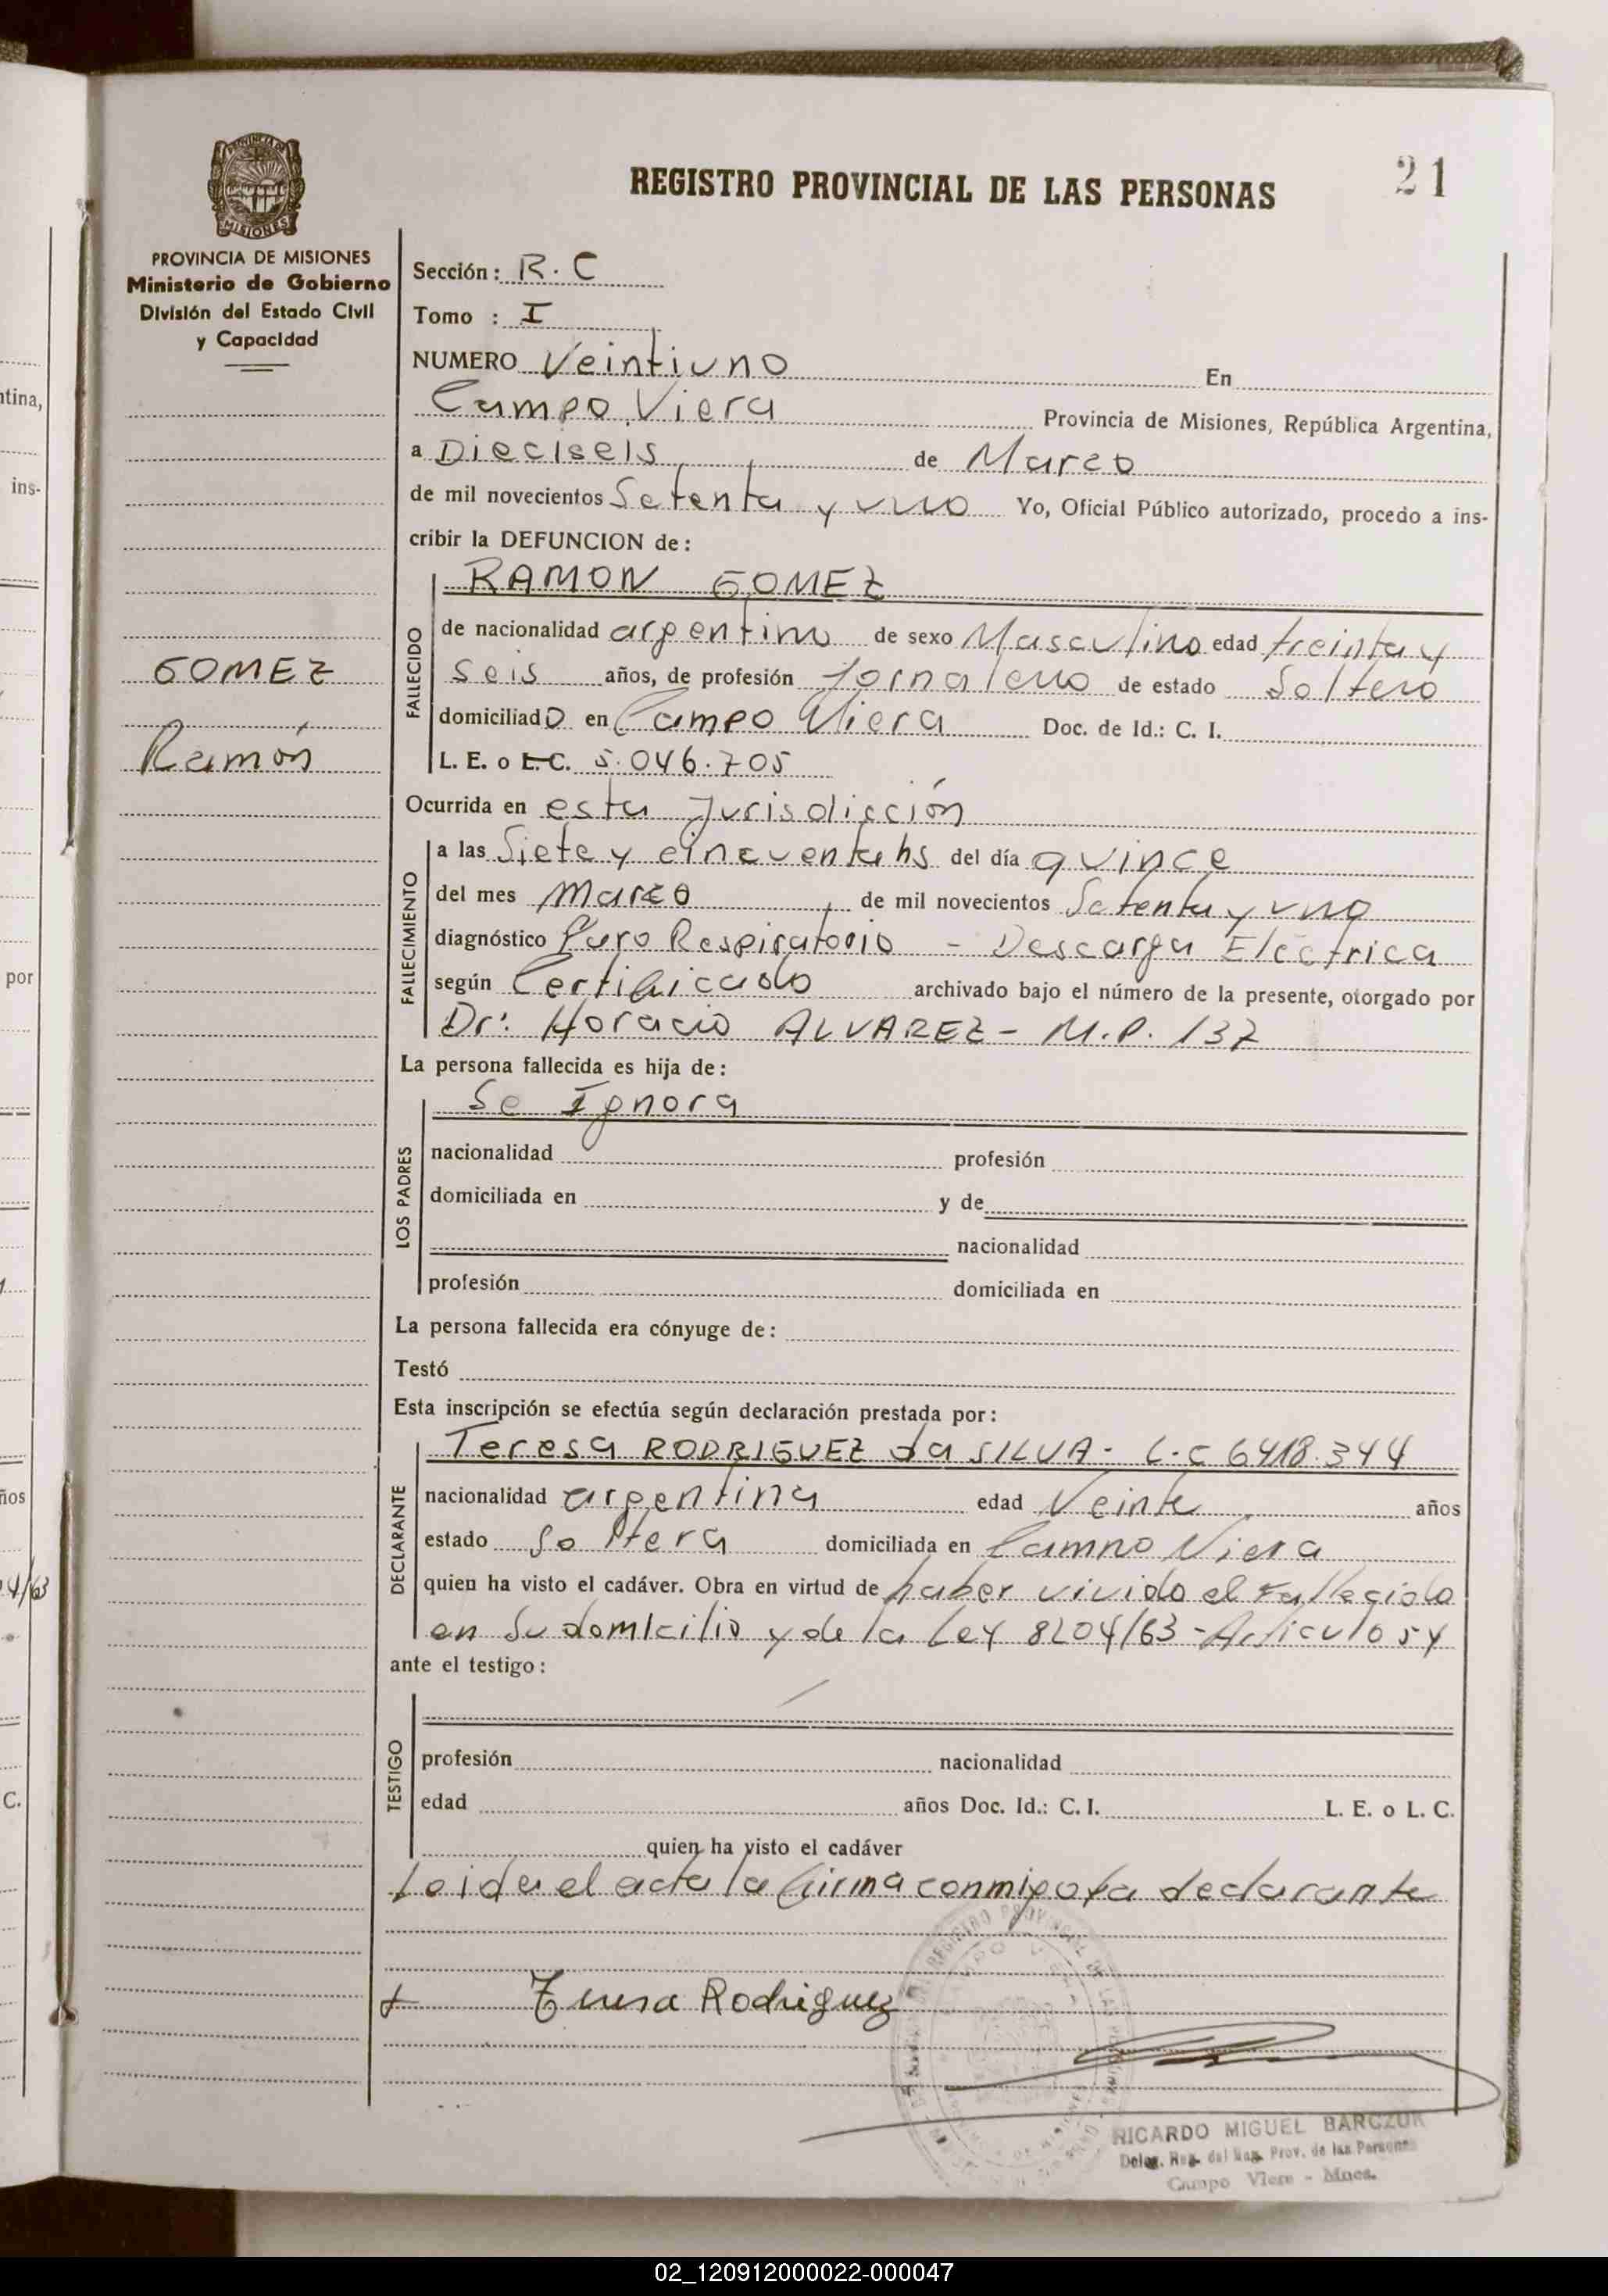 REGISTRO PROVINCIAL DE LAS PERSONAS
21
PROVINCIA DE MISIONES
Ministerio de Gobierno
División del Estado Civil
y Capacidad
GOMEZ
Ramón
Sección: R.C
Tomo : I
NUMERO Veintiuno En
Campo Viera Provincia de Misiones, República Argentina,
a Dieciseis de Marzo
de mil novecientos Setenta y uno Yo, Oficial Público autorizado, procedo a ins-
cribir la DEFUNCION de:
FALLECIDO
RAMON GOMEZ
de nacionalidad argentino de sexo Masculino edad treinta y
seis años, de profesión Jornalero de estado Soltero
domiciliadO en Campo Viera Doc. de Id.: C. I.
L. E. o L.C. 5.046.705
Ocurrida en esta Jurisdicción
FALLECIMIENTO
a las Siete y cincuenta hs del día quince
del mes marzo de mil novecientos Setenta y uno
diagnóstico Paro Respiratorio - Descarga Eléctrica
según Certificado archivado bajo el número de la presente, otorgado por
Dr: Horacio ALVAREZ - M.P. 137
La persona fallecida es hija de:
LOS PADRES
Se Ignora
nacionalidad profesión
domiciliada en y de
nacionalidad
profesión domiciliada en
La persona fallecida era cónyuge de:
Testó
Esta inscripción se efectúa según declaración prestada por:
DECLARANTE
Teresa RODRIGUEZ da SILVA - L.C 6418.344
nacionalidad argentina edad Veinte años
estado Soltera domiciliada en Campo Viera
quien ha visto el cadáver. Obra en virtud de haber vivido el Fallecido
en su domicilio y de la Ley 8204/63 - Articulo 54
ante el testigo:
TESTIGO
profesión nacionalidad
edad años Doc. Id.: C. I. L. E. o L. C.
quien ha visto el cadáver
Leida el acta la firma conmigo la declarante
Teresa Rodriguez
RICARDO MIGUEL BARCZUK
Deleg. Reg. del Reg. Prov. de las Personas
Campo Viera - Mnes.
02_120912000022-000047